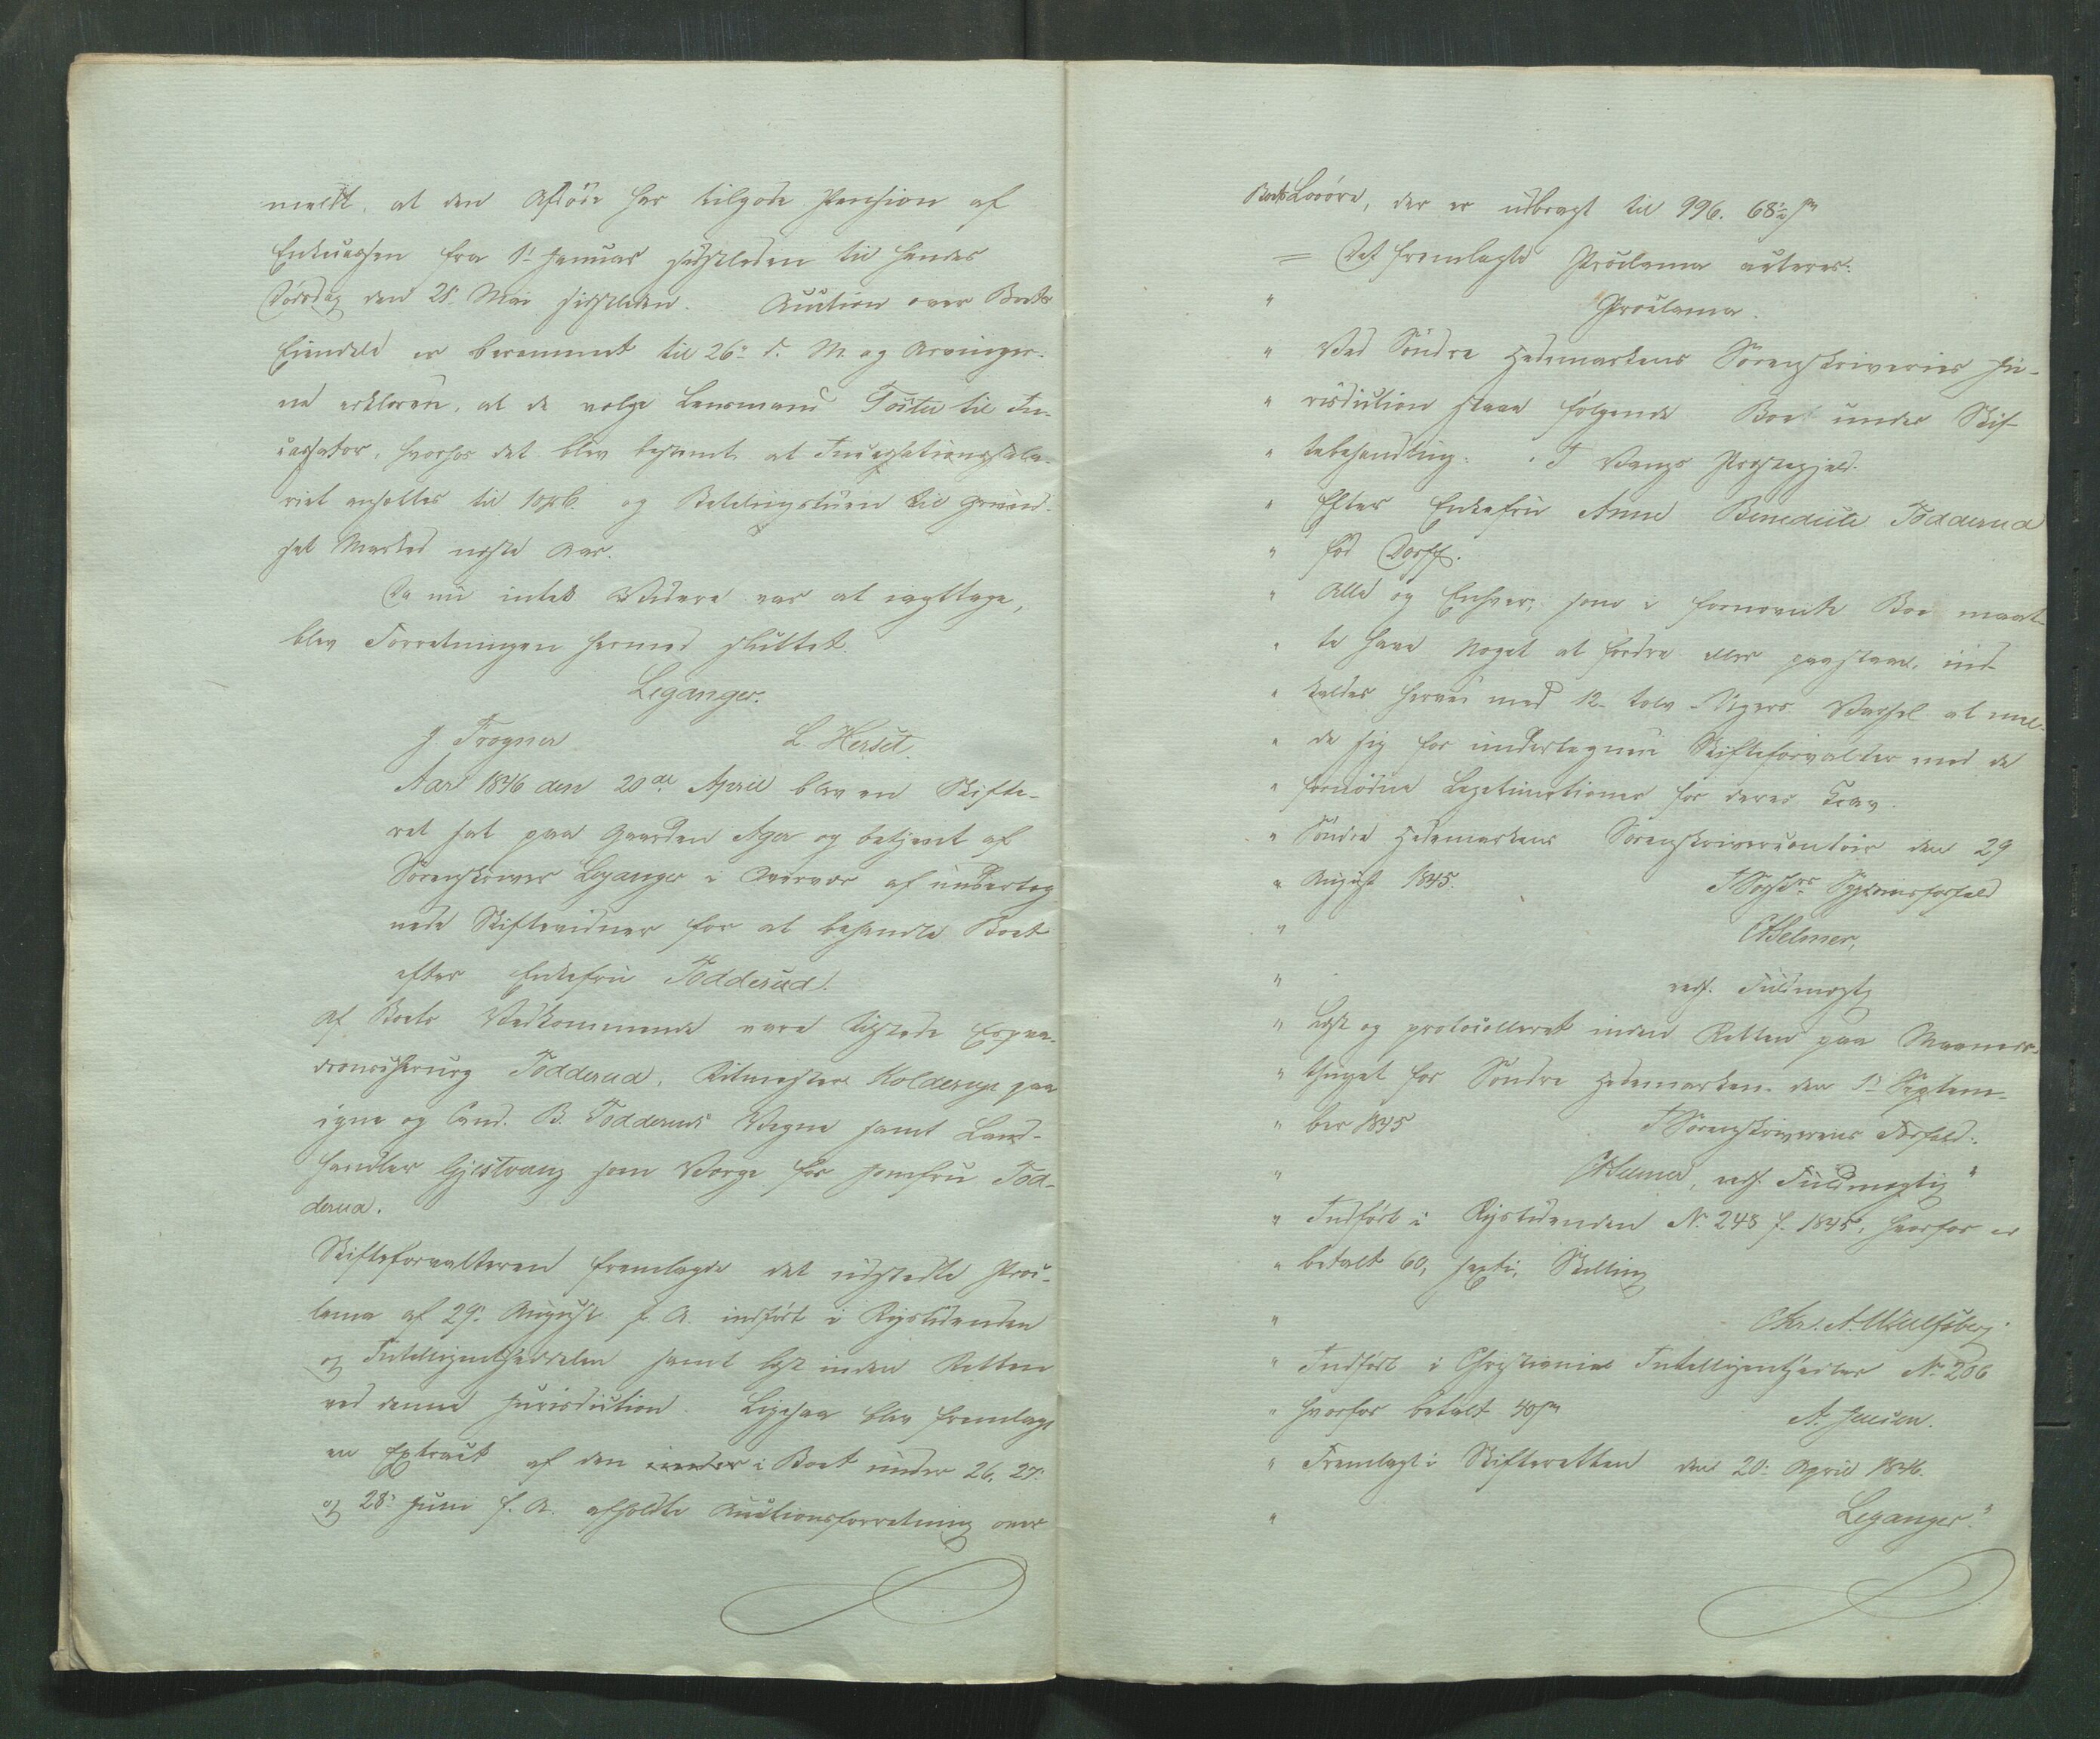 meldt, at den Afdøde har tilgode Pension af
Enkecassen fra 1ste Januar sidstleden til hendes
Dødsdag den 28. Mai sidstleden. Auction over Boets
Eiendele er berammet til 26de d. M. og Arvinger-
ne erklærede, at de valgte Lensmand Toftée til In-
cassator, hvorhos det blev bestemt at Incassationssala-
riet ansættes til 10 pC. og Betalingstiden til Grund-
set Marked næste Aar.
Da nu intet Videre var at iagttage,
blev Forretningen hermed sluttet.
Leganger.
J. Frogner L. Herset.
Aar 1846 den 20de April blev en Skifte-
ret sat paa Gaarden Ager og betjent af
Sorenskriver Leganger i Overvær af underteg-
nede Skiftevidner for at behandle Boet
efter Enkefru Todderud.
Af Boets Vedkommende vare tilstede Esqva-
dronschirurg Todderud, Ritmester Kolderup paa
egne og Cand. B. Todderuds Vegne samt Land-
handler Gjestvang som Værge for Jomfru Tod-
derud.
Skifteforvalteren fremlagde det udstedte Proc-
lama af 29. August f. A. indført i Rigstidenden
og Intelligentssedelen samt læst inden Retten
ved denne Jurisdiction. Ligesaa blev fremlagt
en Extract af den under i Boet under 26, 27.
og 28. Juni f. A. afholdte Auctionsforretning over
Boets Løsøre, der er udbragt til 996. 68½ s
= Det fremlagte Proclama acteres:
" Proclama.
" Ved Søndre Hedemarkens Sorenskriveries Ju-
" risdiction staae følgende Boe under Skif-
" tebehandling: I Vangs Præstegjeld.
" Efter Enkefru Anne Benedicte Todderud
" fød Dorff.
" Alle og Enhver, som i fornævnte Boe maat-
" te have Noget at fordre eller paastaae, ind-
" kaldes herved med 12 - tolv - Ugers Varsel at mel-
" de sig for undertegnede Skifteforvalter med de
" fornødne Legitimationer for deres Krav.
" Søndre Hedemarkens Sorenskrivercontoir den 29
" August 1845. I Sygdomsforfald
" Helmer,
" edsv. Fuldmægtig
" Læst og protocolleret inden Retten paa Maaneds-
" thinget for Søndre Hedemarken den 1ste Septem-
" ber 1845 I Sorenskriverens Forfald:
" Helmer, edsv. Fuldmægtig "
" Indført i Rigstidenden No 248 f. 1845, hvorfor er
" betalt 60, sexti, Skilling
" Chr. A. Wulfsberg.
" Indført i Christiania Intelligentssedler No 206
" hvorfor betalt 40 s A. Jensen.
" Fremlagt i Skifteretten den 20. April 1846.
" Leganger."